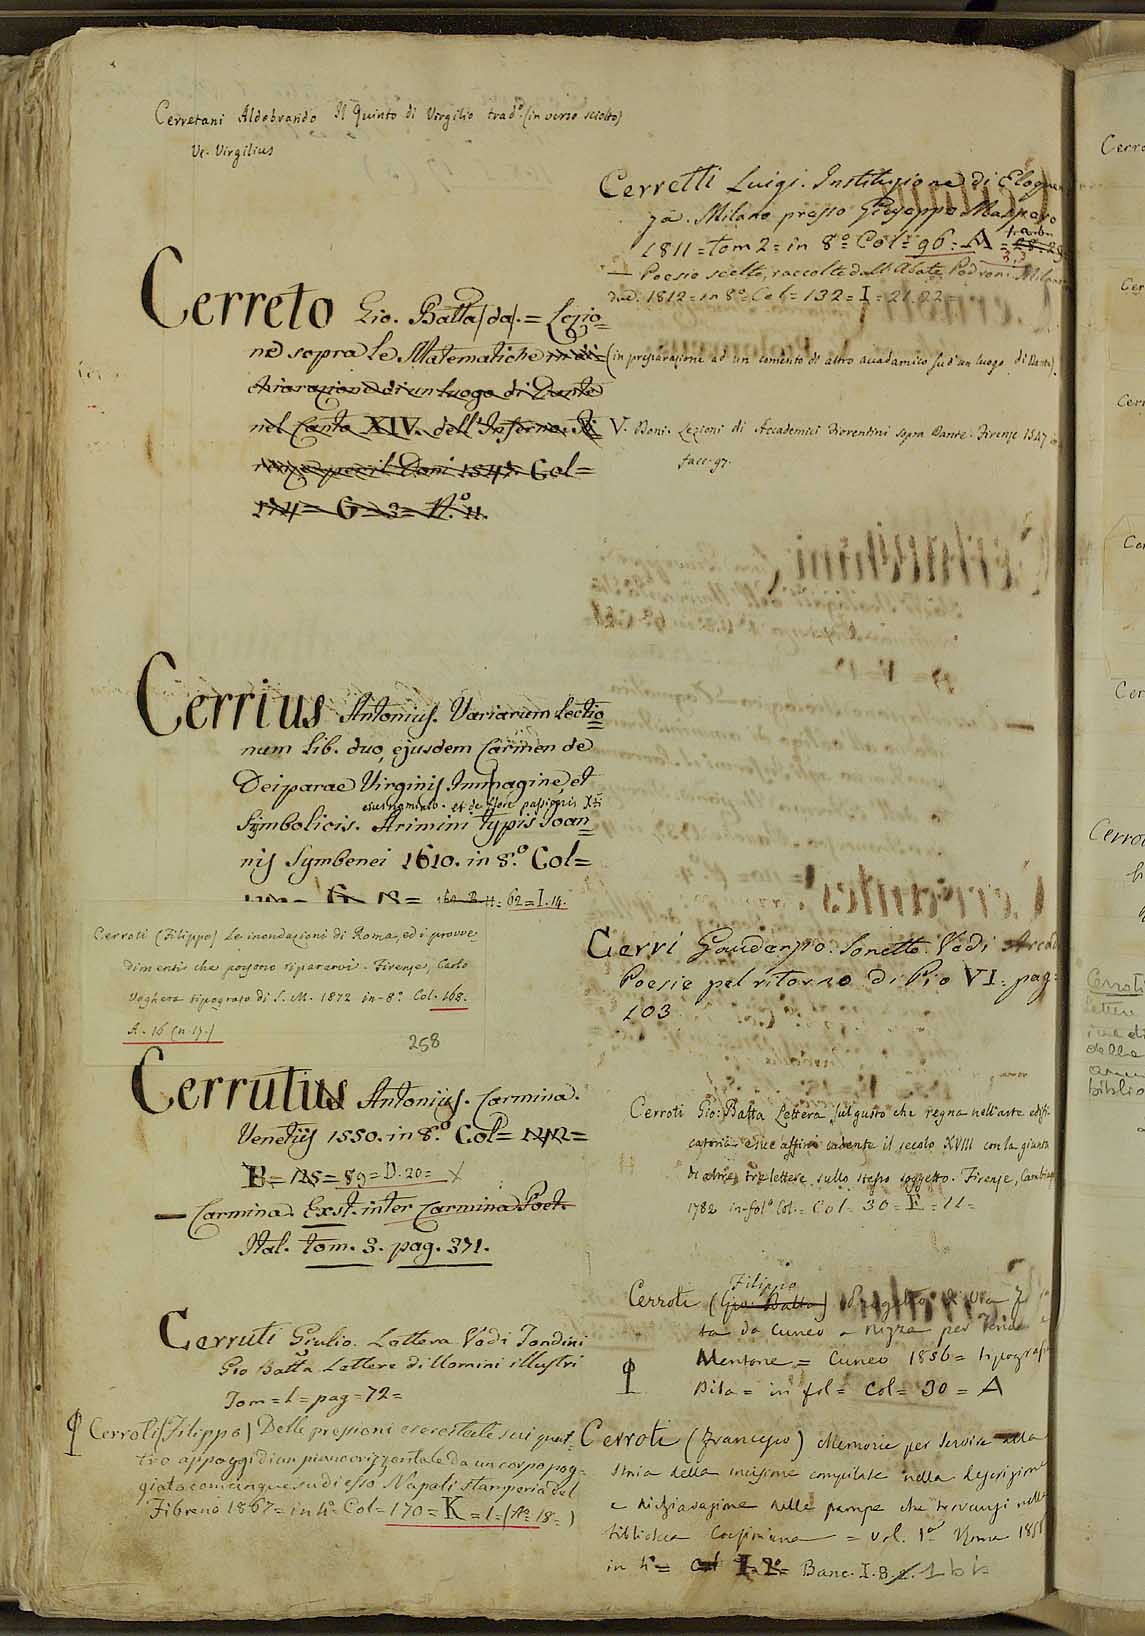 Cerretani Aldobrando Il Quinto di Virgilio trad.º (in verso sciolto)
Ve. Virgilius
Cerreto Gio. Batta (da). = Lezio=
ne sopra le Matematiche in di=
chiarazione di un luogo di Dante
nel Canto XIV. dell'Inferno. Fi
renze per il Doni 1547. Col=
174 = G = 3 = N.º 11.
(in preparazione ad un comento di altro accademico su d'un luogo di Dante).
V. Doni. Lezioni di Accademici Fiorentini sopra Dante. Firenze 1547
facc. 97.
Cerrius Antonius. Variarum Lectio
num Lib. duo, ejusdem Carmen de
Deiparae Virginis Immagine, et
ejus nomine. et de flore passionis Xti
Symbolicis. Arimini typis Joan=
nis Symbenei 1610. in 8.º Col=
62 = I. 14.
Cerroti (Filippo) Le inondazioni di Roma, ed i provve
dimenti che possono ripararvi. Firenze, Carlo
Voghera tipografo di S. M. 1872 in-8º. Col. 168.
A. 16 (n 17.)
258
Cerrutius Antonius. Carmina.
Venetiis 1550. in 8.º Col= 1212 =
E = 125 = 89 = D. 20 = X
— Carmina. Exst. inter Carmina Poet.
Ital. tom. 3. pag. 371.
Cerruti Giulio. Lettera Vedi Tondini
Gio Batta Lettere di Uomini illustri
Tom = 1 = pag = 72 =
Cerroti (Filippo) Delle pressioni esercitate sui quat=
tro appoggi di un piano orizzontale da un corpo pog=
giato comunque su di esso Napoli stamperia del
Fibreno 1867 = in 4º Col = 170 = K = 1 = (Nº 18 = )
Cerretti Luigi. Instituzione di Eloquen
za. Milano presso Giuseppe Maspero
1811 = tom 2 = in 8º Col = 96 = A =
— Poesie scelte, raccolte dall'Abate Pedroni. Milano
1812 = in 8º Col = 132 = I = 21.22 =
Cerri Gaudenzio. Sonetto. Vedi Arcadi
Poesie pel ritorno di Pio VI. pag:
103
Cerroti Gio: Batta Lettera sul gusto che regna nell'arte edifi
catoria e sue affini cadente il secolo XVIII con la giunta
di altre tre lettere sullo stesso soggetto. Firenze, Cambiagi
1782 in-folº Col. = Col = 30 = E = 11 =
Filippo
Cerroti (Gio: Batta) Progetto di Via
ta da Cuneo a Nizza per Tenda e
Mentone = Cuneo 1856 = tipografia
in fol = Col = 30 = A
Cerroti (Francesco) Memorie per servire alla
storia della incisione compilate nella descrizione
e dichiarazione delle stampe che trovansi nella
biblioteca Corsiniana = vol. 1º Roma 1858
in 4º = Col I. 2º = Banc. I. 8.